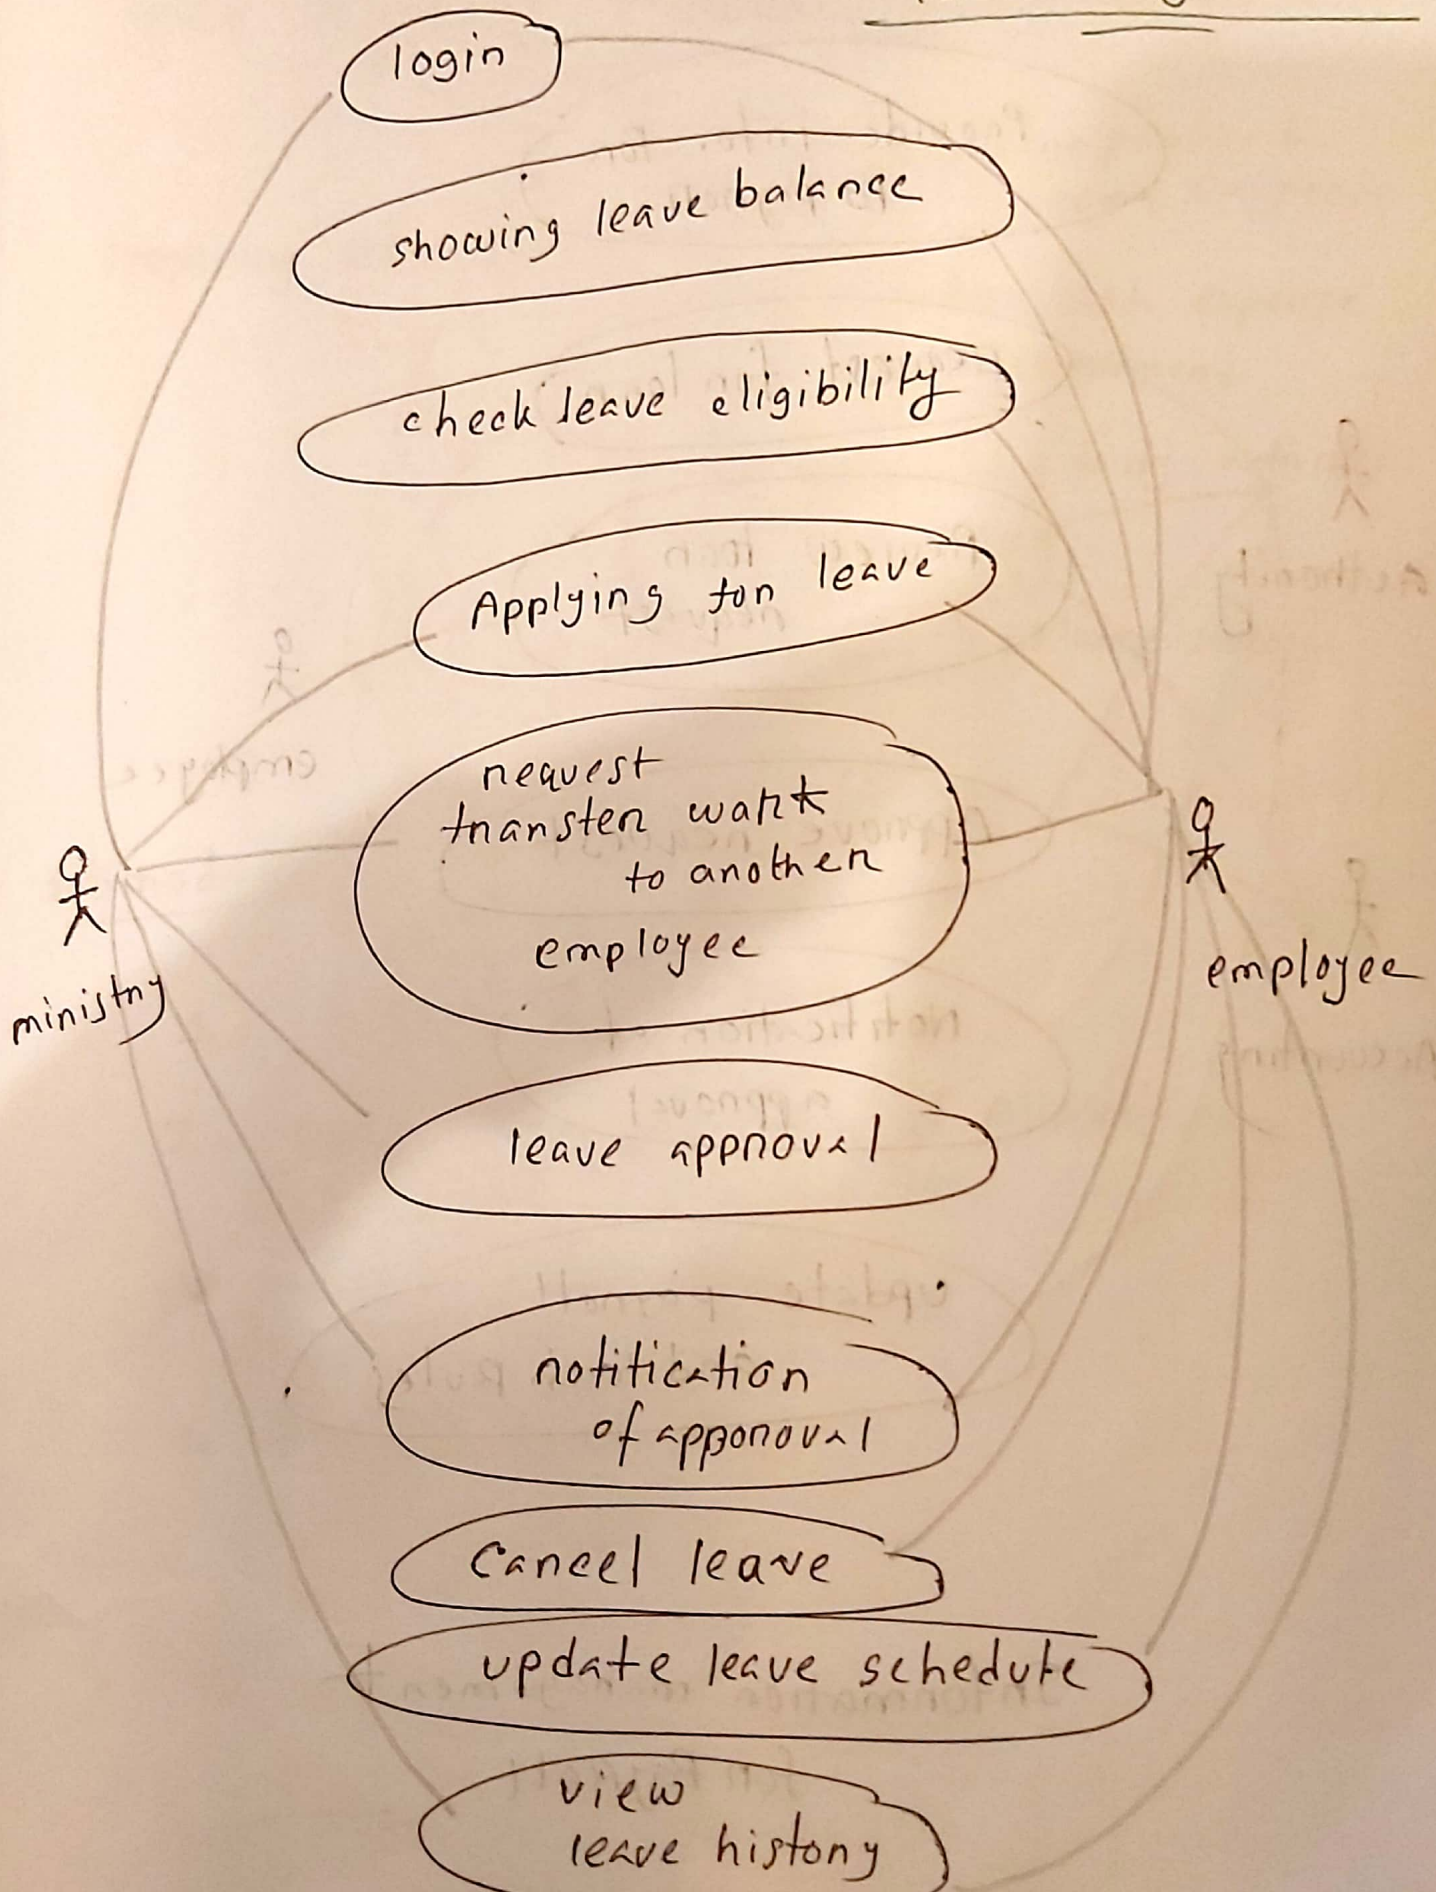 login
showing leave balance
check leave eligibility
Applying for leave
request
transfer work
to another
employee
ministry
employee
leave approval
notification
of apporoval
Cancel leave
update leave schedule
view
leave history